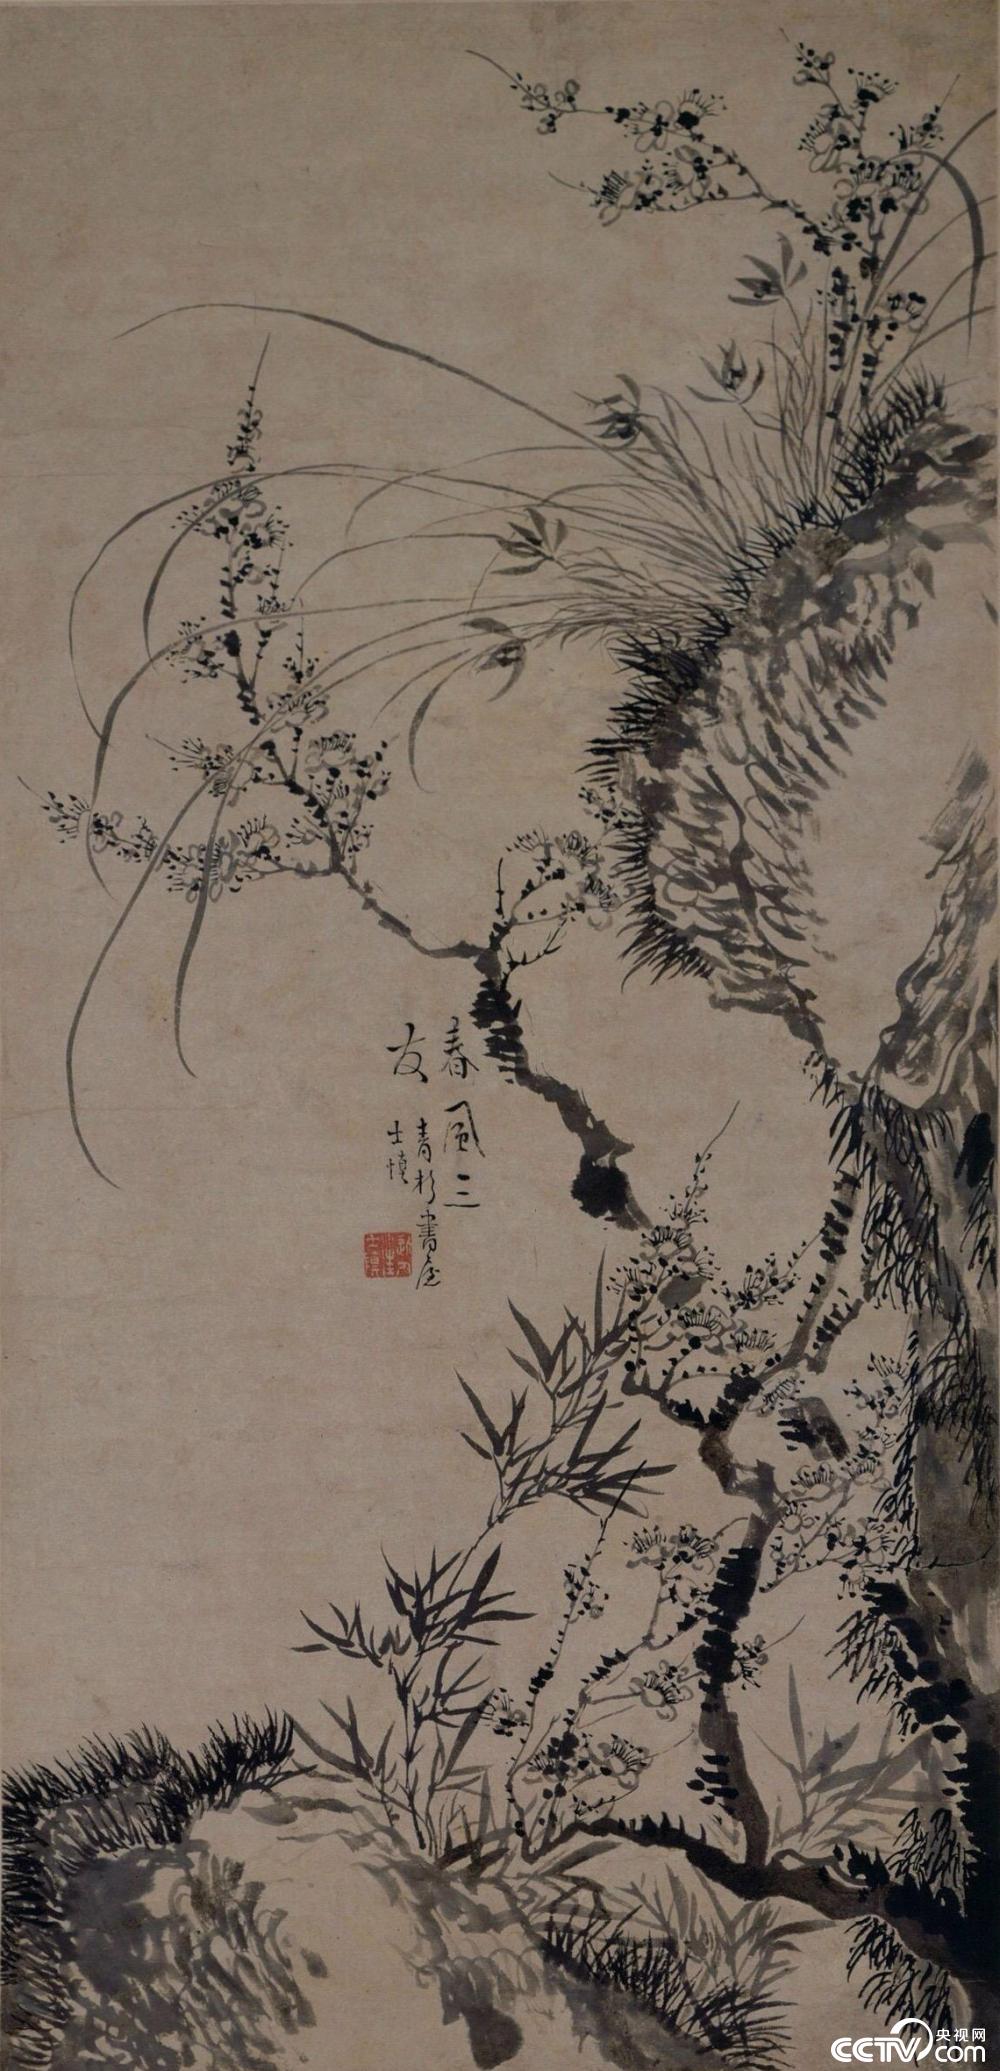 春風三
友
青杉書屋
士慎
央视网
CCTV.com